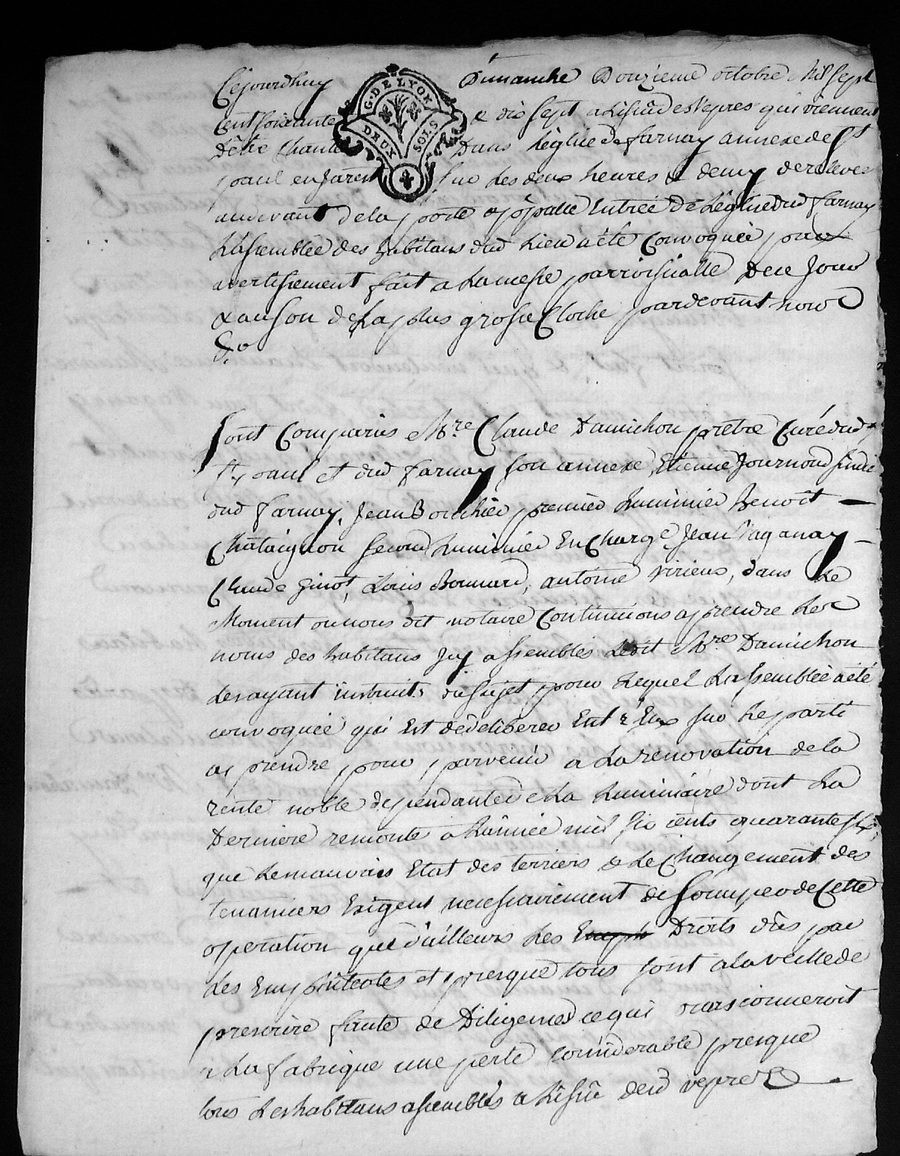 Cejourdhuy Dimanche Douzieme octobre Mil Sept
G. DE LYON
DEUX SOLS
Cent soixante & dix sept a lissue des vepres qui viennent
D'etre Chanté Dans l'eglise de farnay annexe de St
paul en Jarest sur les deux heures & demy de relevee
audevant de la porte & principalle Entrée de l'eglise dud farnay
L'assemblée des habitans dud Lieu a été Convoquée par
avertissement fait a la messe parroissialle de ce Jour
& au son de la plus grosse Cloche pardevant nous
&c
Sont Comparus Mre Claude Damichon pretre Curé dud
St paul et dud farnay son annexe, Etienne Journoud sindic
dud farnay, Jean Bouchier premier Luminier Benoit
Chataignon second Luminier En Charge, Jean Paganay
Claude Ginot, Louis Bonnard, antoine Virieux, dans Le
Moment ou nous dit notaire Continuions a prendre Les
noms des habitans Icy assemblés Ledit Mre Damichon
Les ayant instruits du sujet pour Lequel L'assemblée a été
convoquée qui Est de deliberer Entr'Eux sur Le parti
a prendre pour parvenir a La renovation de la
rente noble dependante de La Luminaire dont La
Derniere remonte a L'année mil six cents quarante six,
que Le mauvais Etat des terriers & Le Changement des
tenanciers Exigent necessairement de s'occuper de Cette
operation que d'ailleurs Les Droits dûs par
Les Emphiteotes et presque tous sont a la veille de
prescrire faute de Diligence ce qui occasionneroit
a La fabrique une perte considerable presque
tous Les habitans assemblés a L'issüe desd vepres